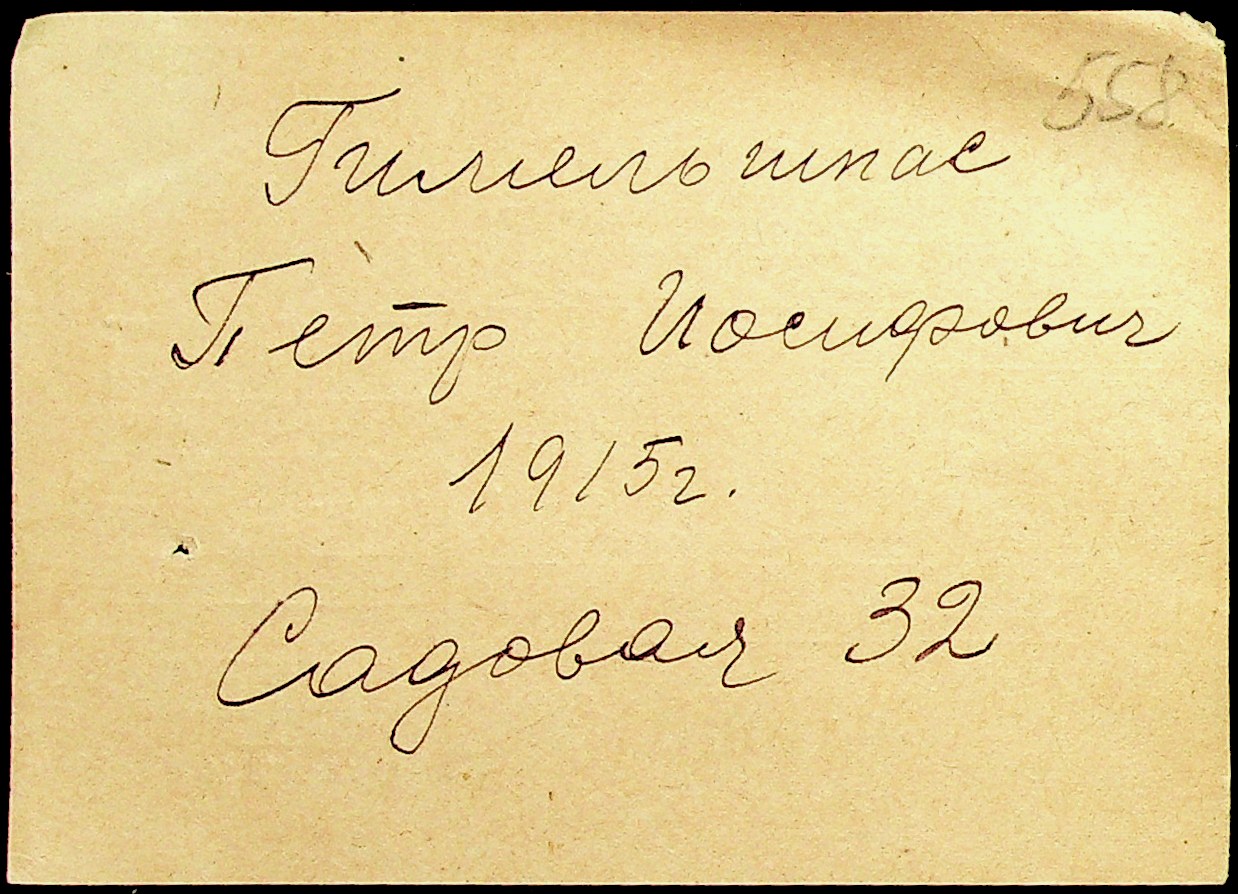 558
Гимельшпас
Пётр Иосифович
1915г.
Садовая 32